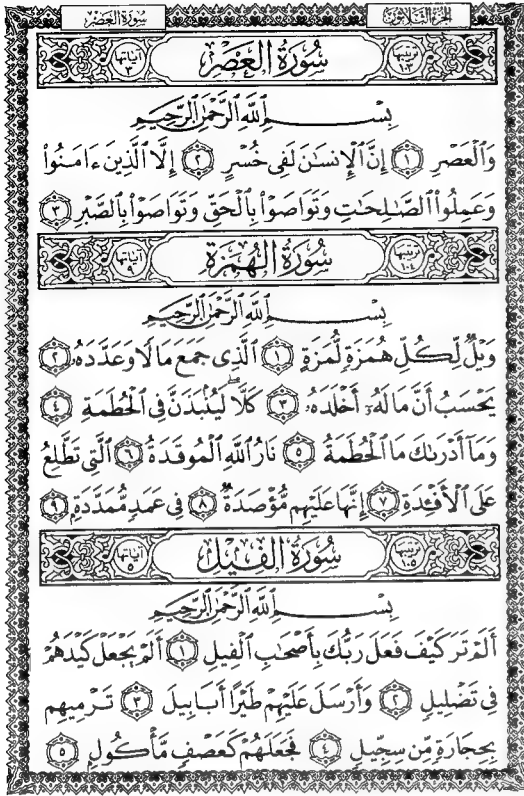 الجزء الثلاثون سورة العصر
ترتيبها ١٠٣ سُورَةُ العَصْرِ آياتها ٣
بِسْمِ ٱللَّهِ ٱلرَّحْمَٰنِ ٱلرَّحِيمِ
وَٱلْعَصْرِ ١ إِنَّ ٱلْإِنسَٰنَ لَفِى خُسْرٍ ٢ إِلَّا ٱلَّذِينَ ءَامَنُوا۟
وَعَمِلُوا۟ ٱلصَّٰلِحَٰتِ وَتَوَاصَوْا۟ بِٱلْحَقِّ وَتَوَاصَوْا۟ بِٱلصَّبْرِ ٣
ترتيبها ١٠٤ سُورَةُ الهُمَزَةِ آياتها ٩
بِسْمِ ٱللَّهِ ٱلرَّحْمَٰنِ ٱلرَّحِيمِ
وَيْلٌ لِّكُلِّ هُمَزَةٍ لُّمَزَةٍ ١ ٱلَّذِى جَمَعَ مَالًا وَعَدَّدَهُۥ ٢
يَحْسَبُ أَنَّ مَالَهُۥٓ أَخْلَدَهُۥ ٣ كَلَّا ۖ لَيُنۢبَذَنَّ فِى ٱلْحُطَمَةِ ٤
وَمَآ أَدْرَىٰكَ مَا ٱلْحُطَمَةُ ٥ نَارُ ٱللَّهِ ٱلْمُوقَدَةُ ٦ ٱلَّتِى تَطَّلِعُ
عَلَى ٱلْأَفْـِٔدَةِ ٧ إِنَّهَا عَلَيْهِم مُّؤْصَدَةٌ ٨ فِى عَمَدٍ مُّمَدَّدَةٍۭ ٩
ترتيبها ١٠٥ سُورَةُ الفِيلِ آياتها ٥
بِسْمِ ٱللَّهِ ٱلرَّحْمَٰنِ ٱلرَّحِيمِ
أَلَمْ تَرَ كَيْفَ فَعَلَ رَبُّكَ بِأَصْحَٰبِ ٱلْفِيلِ ١ أَلَمْ يَجْعَلْ كَيْدَهُمْ
فِى تَضْلِيلٍ ٢ وَأَرْسَلَ عَلَيْهِمْ طَيْرًا أَبَابِيلَ ٣ تَرْمِيهِم
بِحِجَارَةٍ مِّن سِجِّيلٍ ٤ فَجَعَلَهُمْ كَعَصْفٍ مَّأْكُولٍۭ ٥